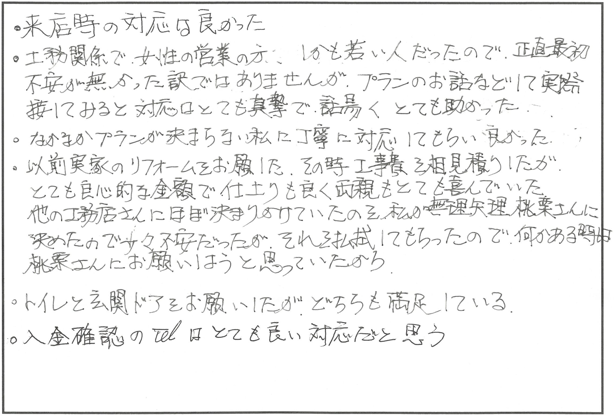 ・来店時の対応は良かった
・工務関係で、女性の営業の方、しかも若い人だったので、正直最初
不安が無かった訳ではありませんが、プランのお話などして実際
接してみると対応はとても真摯で、話易く とても助かった。
・なかなかプランが決まらない私に丁寧に対応してもらい良かった。
・以前実家のリフォームをお願した。その時工事費を相見積りしたが
とても良心的な金額で仕上りも良く両親もとても喜んでいた。
他の工務店さんにほぼ決まりかけていたのを、私が無理矢理 桃栗さんに
決めたので少々不安だったが、それを払拭してもらったので、何かある時は
桃栗さんにお願いしようと思っていたから
・トイレと玄関ドアをお願いしたが、どちらも満足している。
・入金確認のtelはとても良い対応だと思う